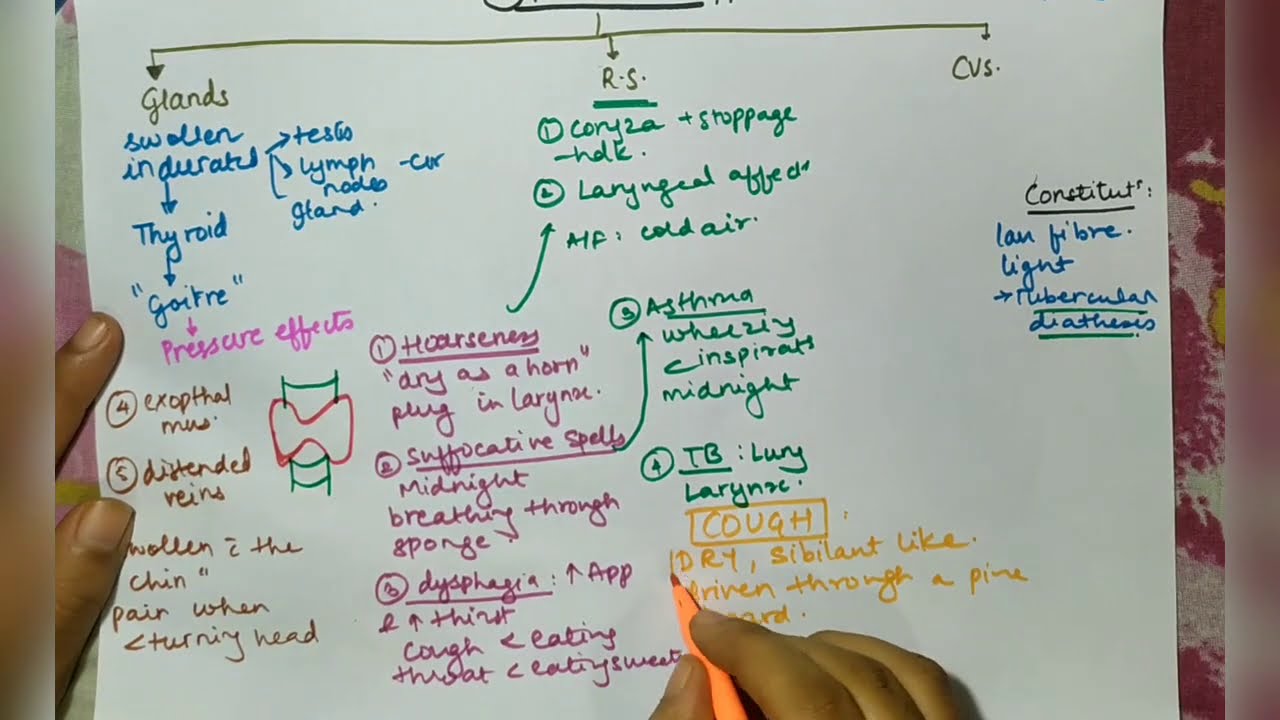 Glands
swollen
indurated
→ testes
→ lymph
nodes
gland.
Thyroid
"Goitre"
Pressure effects
④ exopthal
mus.
⑤ distended
veins
wollen = the
chin"
pain when
< turning head
R.S.
① Coryza + stoppage
-hdk.
② Laryngeal affect
A/F: cold air.
① Hoarseness
"dry as a horn"
plug in larynx.
② Suffocative spells
Midnight
breathing through
sponge.
③ dysphagia: ↑ App
& ↑ thirst
cough < eating
throat < eating sweet
③ Asthma
wheezing
< inspirat
midnight
④ TB: Lung
Larynx.
COUGH:
DRY, sibilant like.
driven through a pine
CVS.
Constitut:
lax fibre.
light
→ Tubercular
diathesis